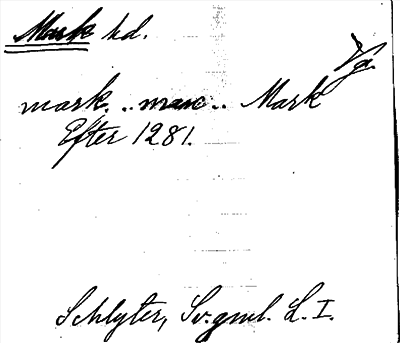 Mark hd.
Vg.
mark.. marc.. Mark
Efter 1281.
Schlyter, Sv. gml. L. I.